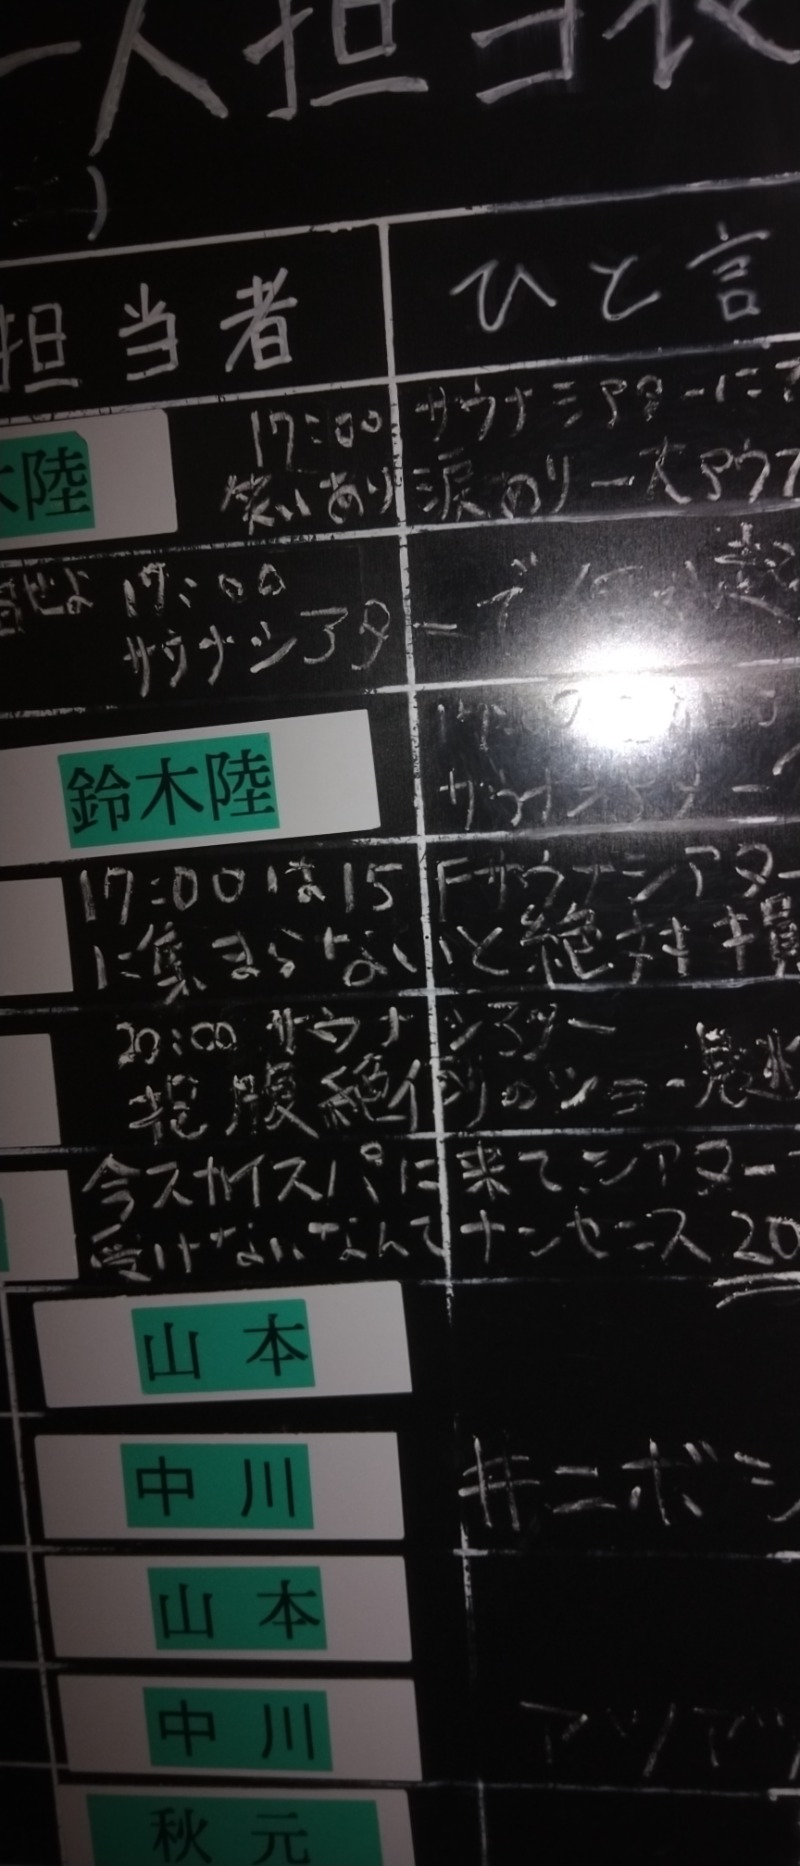 人担当表
担当者 ひと言
木陸 17:00 サウナシアターにて
笑いあり涙ありリースアウフ
せよ 17:00
サウナシアター
鈴木陸
17:00は15Fサウナシアター
に集まらないと絶対損
20:00 サウナシアター
抱腹絶倒のショー
今スカイスパに来て、シアター
受けないなんてナンセンス 20
山本
中川 #ニボシ
山本
中川 アツアツ
秋元